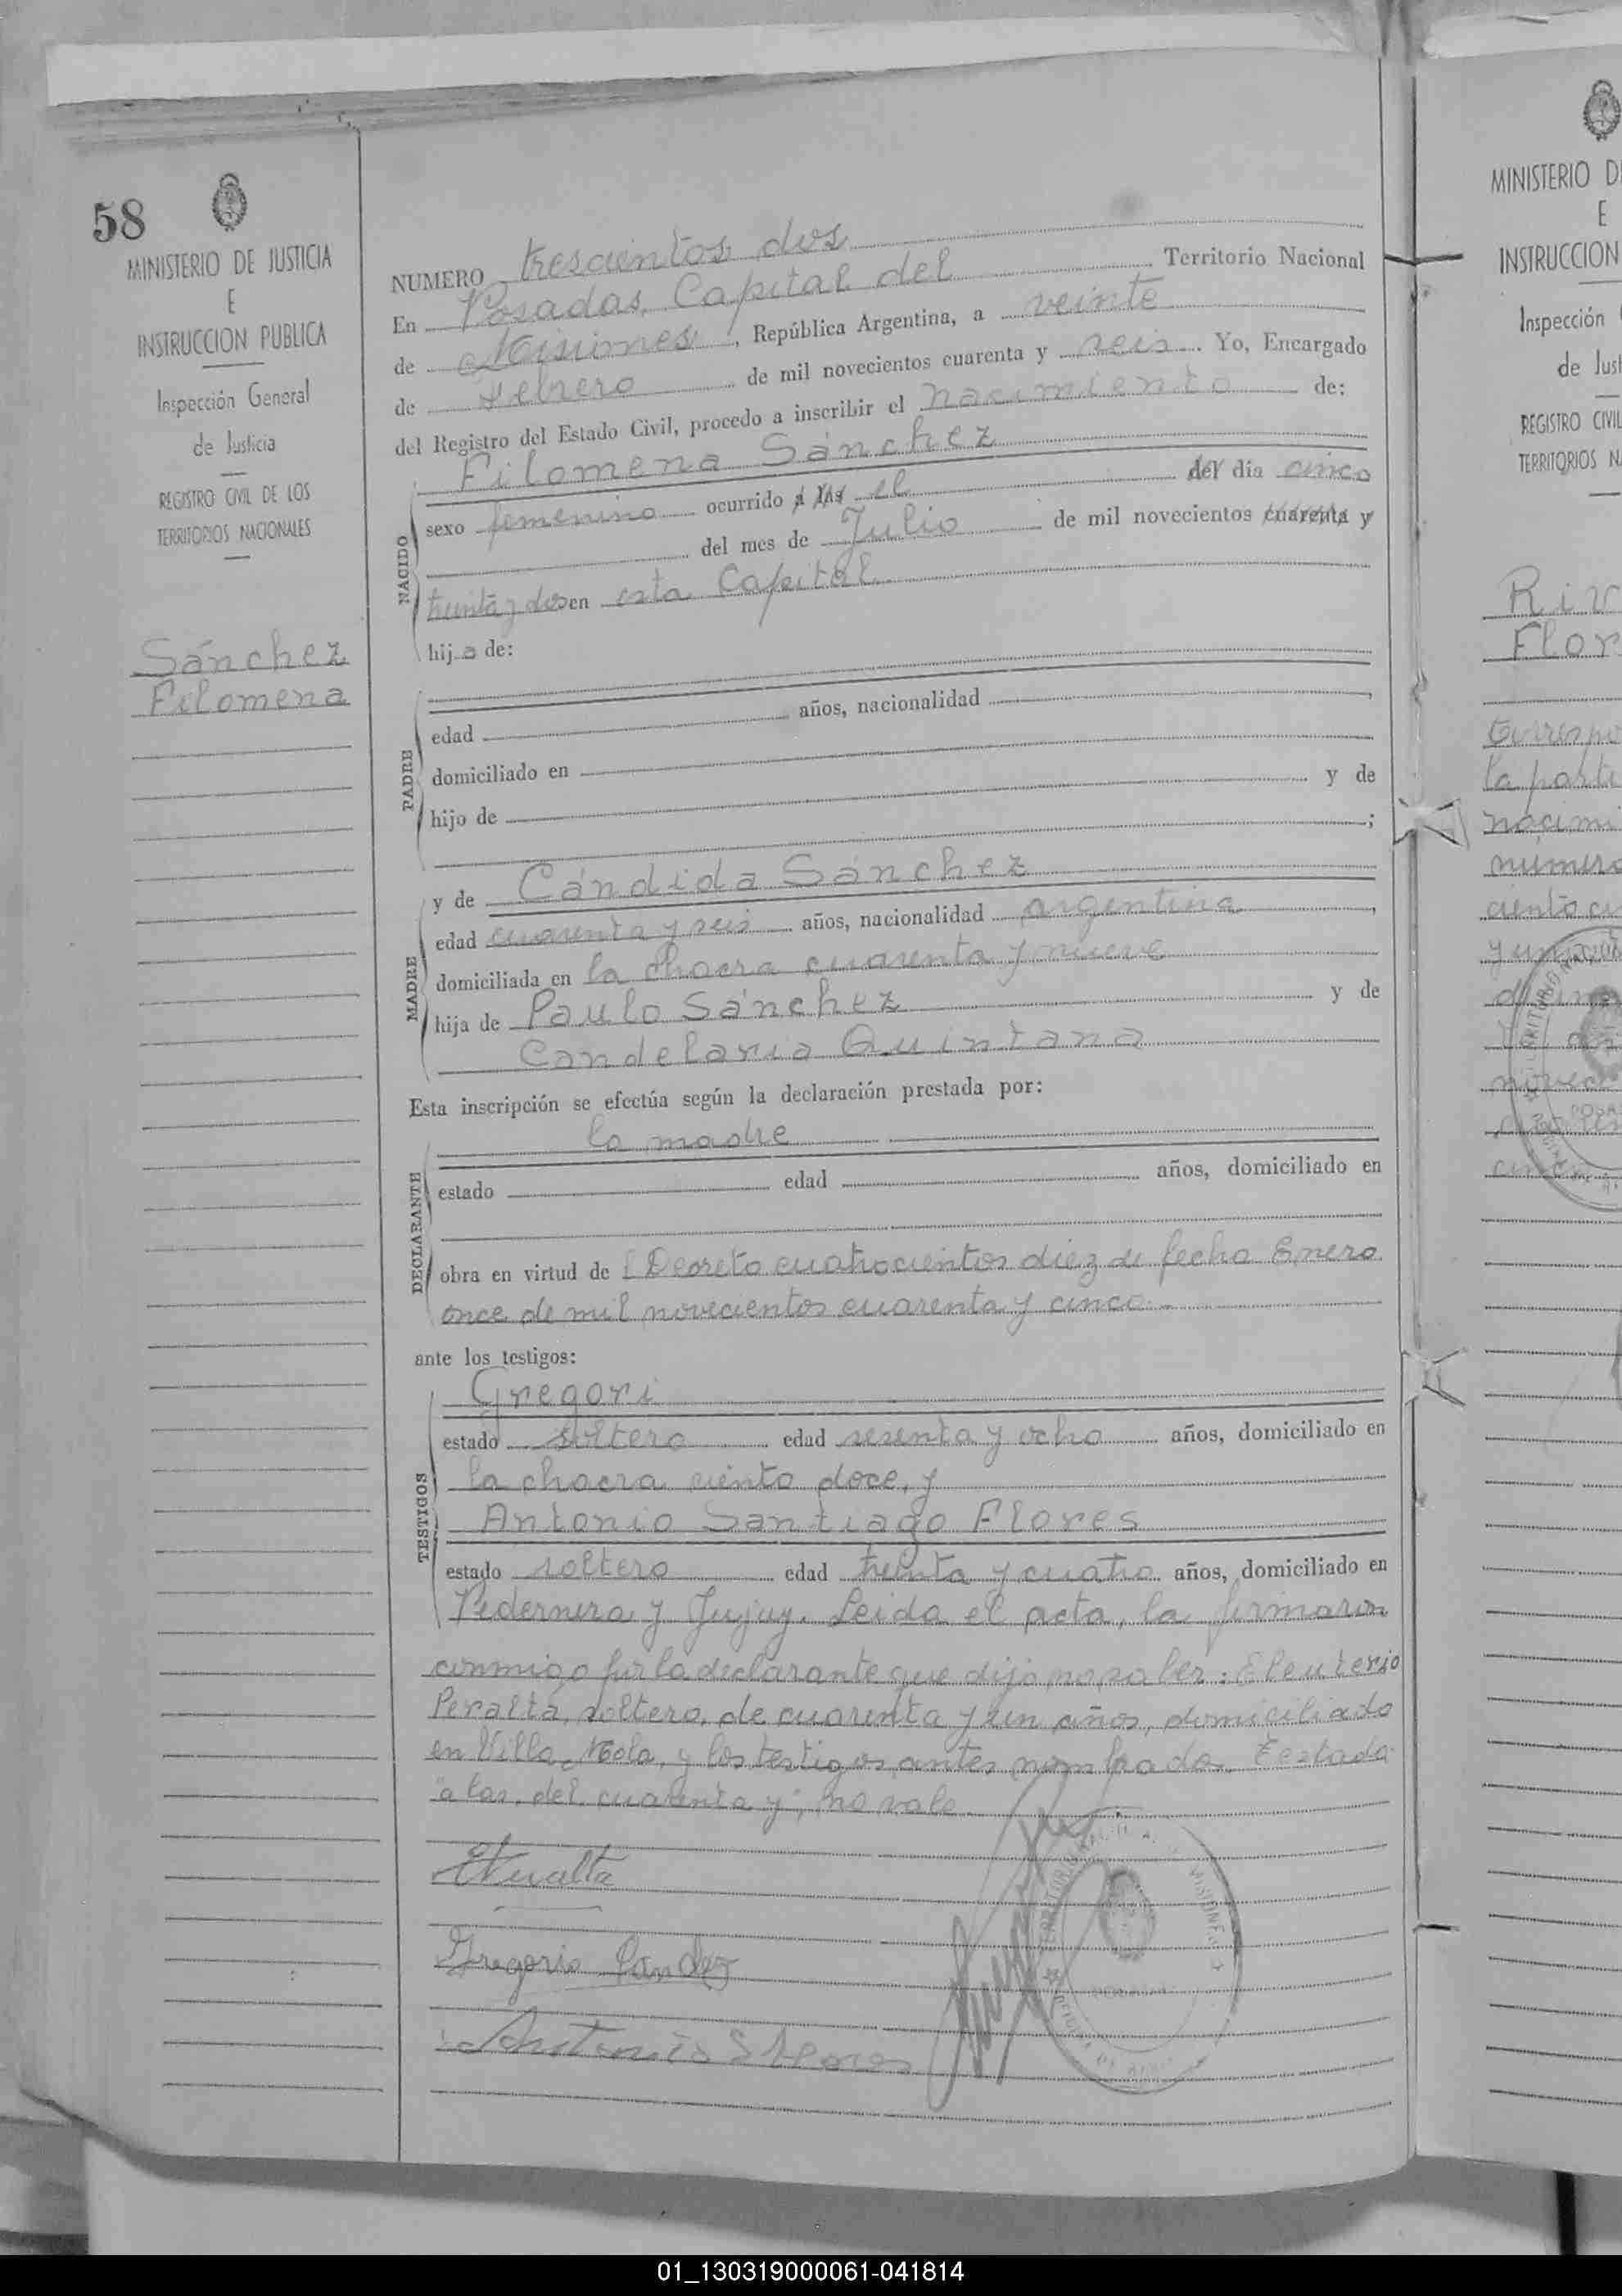 58
MINISTERIO DE JUSTICIA
E
INSTRUCCION PUBLICA
Inspección General
de Justicia
REGISTRO CIVIL DE LOS
TERRITORIOS NACIONALES
Sánchez
Filomena
NUMERO trescientos dos
En Posadas, Capital del Territorio Nacional
de Misiones, República Argentina, a veinte
de Febrero de mil novecientos cuarenta y seis. Yo, Encargado
del Registro del Estado Civil, procedo a inscribir el nacimiento de:
NACIDO
Filomena Sánchez
sexo femenino ocurrido a las el del día cinco
del mes de Julio de mil novecientos cuarenta y
treinta y dos en esta Capital
hija de:
PADRE
edad años, nacionalidad ,
domiciliado en
hijo de y de
;
MADRE
y de Cándida Sánchez
edad cuarenta y seis años, nacionalidad argentina ,
domiciliada en la chacra cuarenta y nueve
hija de Paulo Sánchez y de
Candelaria Quintana
Esta inscripción se efectúa según la declaración prestada por:
DECLARANTE
la madre
estado edad años, domiciliado en
obra en virtud de l Decreto cuatrocientos diez de fecha Enero
once de mil novecientos cuarenta y cinco.-
ante los testigos:
TESTIGOS
Gregori
estado soltero edad sesenta y ocho años, domiciliado en
la chacra ciento doce, y
Antonio Santiago Flores
estado soltero edad treinta y cuatro años, domiciliado en
Pedernera y Jujuy. Leida el acta, la firmaron
conmigo por la declarante que dijo no saber: Eleuterio
Peralta, soltero, de cuarenta y un años, domiciliado
en Villa Mola, y los testigos antes nombrados. Testado
"a las, del, cuarenta y", no vale.
EPeralta
Gregorio Sanchez
Antonio S Flores
MISIONES
MINISTERIO D
E
INSTRUCCION
Inspección
de Just
REGISTRO CIVIL
TERRITORIOS N
Riv
Flor
Correspo
la parti
nacimi
número
ciento ci
01_130319000061-041814